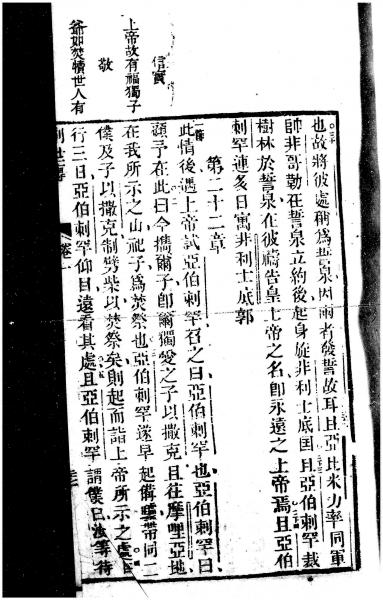 也故將彼處稱為誓泉因兩者發誓故耳且亞比米力率同軍
帥非哥勒在誓泉立約後起身旋非利士底国且亞伯刺罕栽
樹林於誓泉在彼禱告皇上帝之名卽永遠之上帝焉且亞伯
刺罕連多日寓非利士底郭
第二十二章
此情後遇上帝試亞伯刺罕召之曰亞伯刺罕也亞伯刺罕曰
頭予在此曰今攜爾子卽爾獨愛之子以撒克且往摩哩亞地
在我所示之山祉子爲焚祭也亞伯刺罕遂早起備驢帶同二
僕及子以撒克制劈柴以焚祭矣則起而詣上帝所示之處
行三日亞伯刺罕仰目遠看其處且亞伯刺罕謂僕曰汝等待
創世傳
卷一
信實
上帝故有福獨子
敬
爺如焚犢世人有